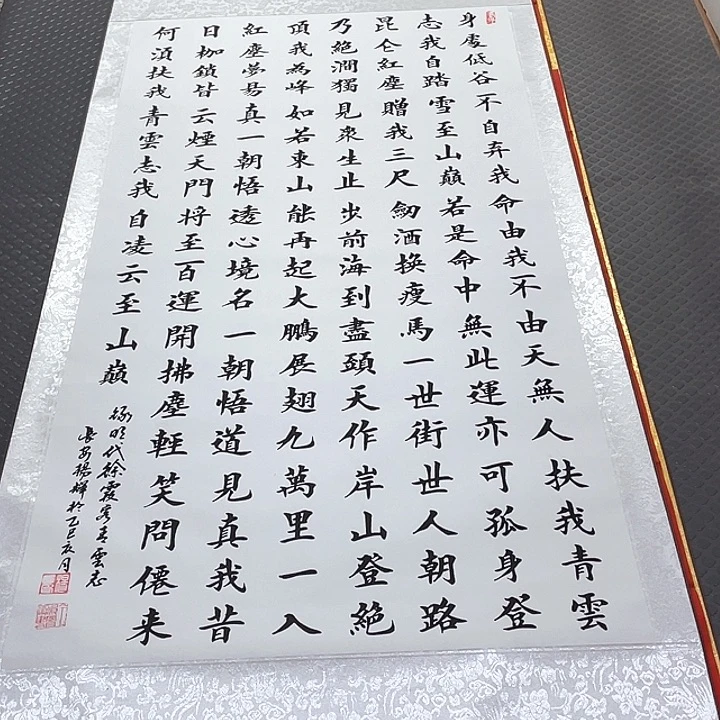 身處低谷不自弃我命由我不由天無人扶我青雲
志我自踏雪至山巔若是命中無此運亦可孤身登
昆仑紅塵贈我三尺劒酒換瘦馬一世街世人朝路
乃絕澗獨見眾生止步前海到盡頭天作岸山登絕
頂我為峰如若東山能再起大鵬展翅九萬里一入
紅塵夢易真一朝悟透心境名一朝悟道見真我昔
日枷鎖皆云煙天門將至百運開拂塵輕笑問僊来
何湏扶我青雲志我自凌云至山巔
録明代徐霞客青雲志
長安楊輝於乙巳月